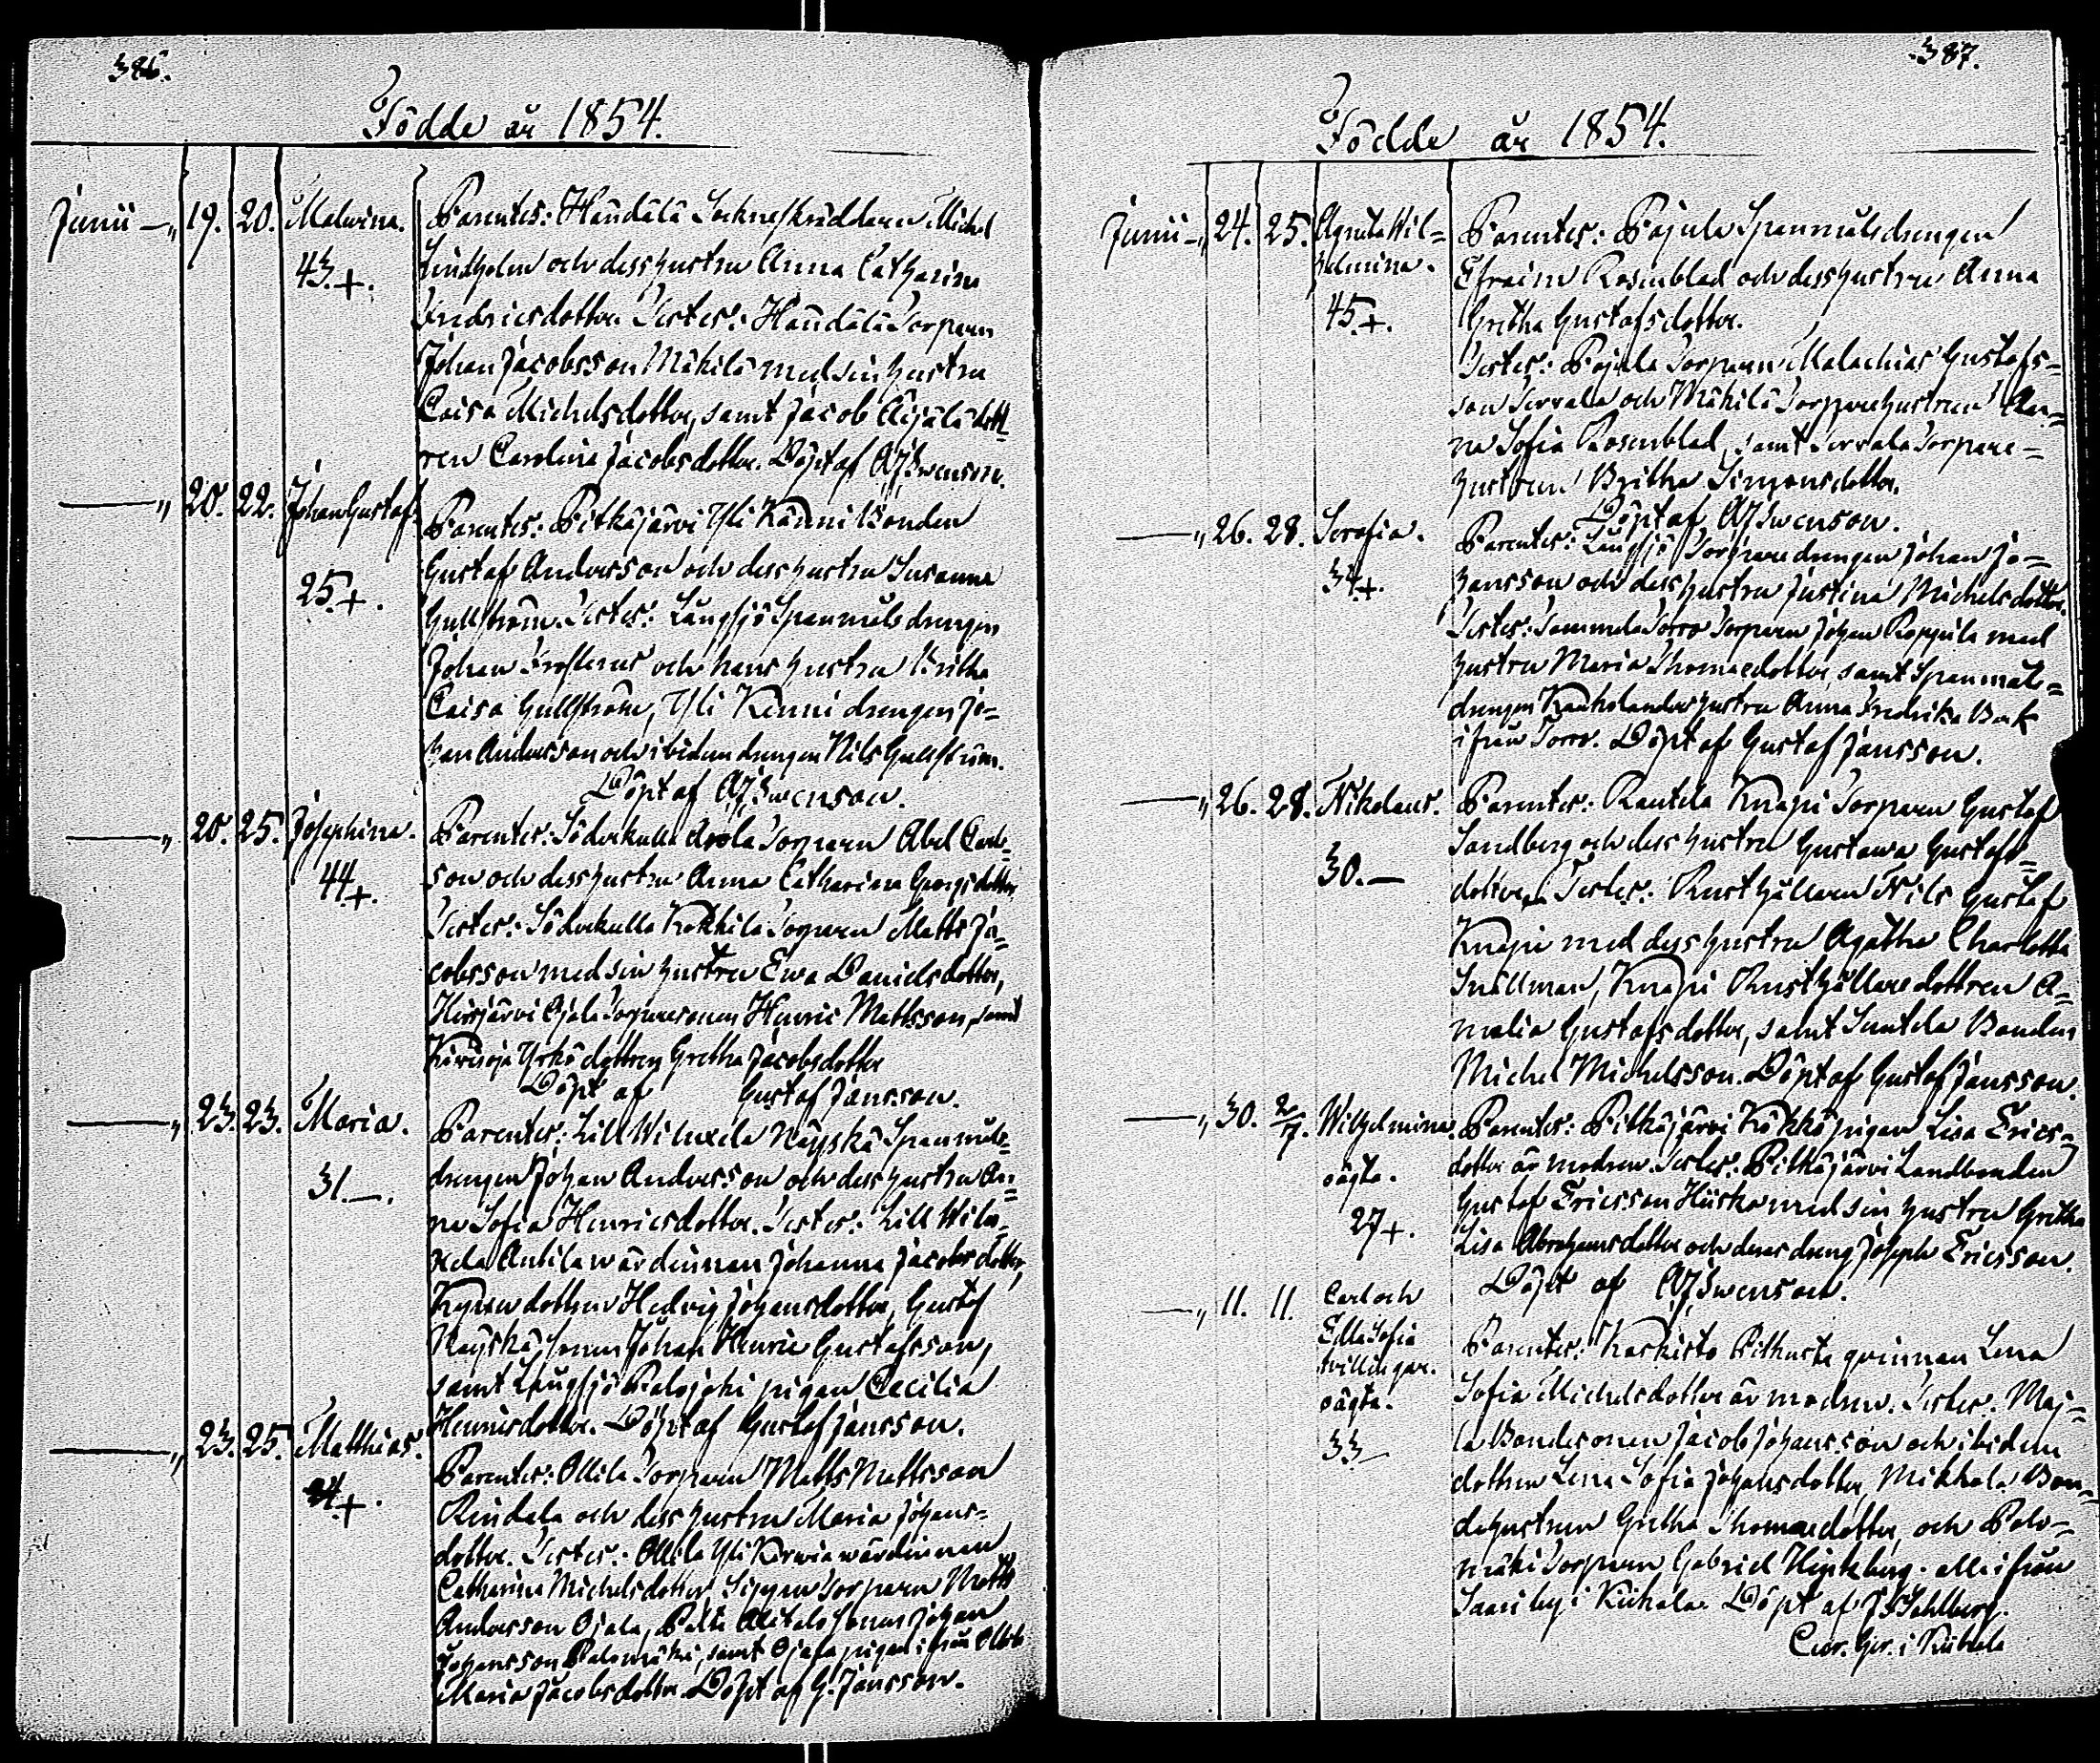 386.
Födde år 1854.
Junii — „ 19. 20. Malvina. 43.+.
Parentes: Haudälä Sockneskräddaren Michel
Lindholm och dess hustru Anna Catharina
Fredricsdotter. Testes: Haudälä Torparen
Johan Jacobsson Mäkilä med sin hustru
Caisa Michelsdotter, samt Jacob Äijälä dott-
ren Carolina Jacobsdotter. Döpt af AJSwenson.
— „ 20. 22. Johan Gustaf. 25.+.
Parentes: Pitkäjärvi Yli Känni Bonden
Gustaf Andersson och dess hustru Susanna
Gullström. Testes: Långsjö Spanmåls drengen
Johan Frosterus och hans hustru Britha
Caisa Gullström, Yli Kenni drengen Jo-
han Andersson och ibidem drengen Nils Gullström.
Döpt af AJSwenson.
— „ 20. 25. Josephina. 44.+.
Parentes: Söderkulla Torparen Abel Carls-
son och dess hustru Anna Catharina Georgsdotter,
Testes: Söderkulla Kokkila Torparen Matts Ja-
cobsson med sin hustru Ewa Danielsdotter,
Hirsjärvi Ojala Torparesonen Henric Mattsson, samt
Kerisoja Yrkö dottren Gretha Jacobsdotter
Döpt af Gustaf Jansson.
— „ 23. 23. Maria. 31.—.
Parentes: Lill Wiluxela Näyskä Spanmåls-
drengen Johan Andersson och dess hustru An-
na Sofia Henricsdotter. Testes: Lill Wilu-
xela Antila wärdinnan Johanna Jacobsdotter,
Kyren dottren Hedvig Johansdotter, Gustaf
Näyskä Sonen Johan Henric Gustafsson,
samt Långsjö Palojoki pigan Cecilia
Henricsdotter. Döpt af Gustaf Jansson.
— „ 23. 25. Matthias. +.
Parentes: Ollila Torparen Matts Mattsson
Rindala och dess hustru Maria Johans-
dotter. Testes: Ollila Yli Kerwia wärdinnan
Catharina Michelsdotter Torparen Matts
Andersson Ojala, Sonen Johan
Johansson Palomäki, samt Ojala pigan ifrån Ollila
Maria Jacobsdotter. Döpt af G. Jansson.
387.
Födde år 1854.
Junii — „ 24. 25. Agneta Wil-
helmina. 45.+.
Parentes: Pajula Spanmåls drengen
Efraim Rosenblad och dess hustru Anna
Gretha Gustafsdotter.
Testes: Pajula Torparen Malachias Gustafs-
son Terrala och Mäkilä Torparehustrun An-
na Sofia Rosenblad, samt Terrala Torpare-
hustrun Britha Simonsdotter.
Döpt af AJSwenson.
— „ 26. 28. Serafia. 34.+.
Parentes: Långsjö Torparedrengen Johan Jo-
hansson och dess hustru Justina Michelsdotter.
Testes: Sammela Torro Torparen Johan Roppila med
hustru Maria Thomaedotter, samt Spanmåls-
drengen Kaukolanders hustru Anna Fredrika Bork
ifrån Torro. Döpt af Gustaf Jansson.
— „ 26. 28. Nikolaus. 30.—
Parentes: Rautela Knapi Torparen Gustaf
Sandberg och dess hustru Gustawa Gustafs-
dotter. Testes: Rusthållaren Nils Gustaf
Knapi med dess hustru Agatha Charlotta
Snällman, Knapi Rusthållare dottren A-
malia Gustafsdotter, samt Suntela Bonden
Michel Michelsson. Döpt af Gustaf Jansson.
— „ 30. 2/7. Wilhelmina. oägta. 27+.
Parentes: Pitkäjärvi Kökkö pigan Lisa Erics-
dotter är modren. Testes: Pitkäjärvi Landbonden
Gustaf Ericsson Hiiska med sin hustru Gretha
Lisa Abrahamsdotter och deras dreng Joseph Ericsson.
Döpt af AJSwenson.
— „ 11. 11. Carl och
Edla Sofia
tvillingar.
oägta.
33—
Parentes: Kaskisto Pitkusta qvinnan Lena
Sofia Michelsdotter är modren. Testes: Maj-
la Bondesonen Jacob Johansson och ibidem
dottren Lena Sofia Johansdotter, Mikkola Bon-
dehustrun Gretha Thomaedotter, och Palo-
mäki Torparen Gabriel Hintzberg. alla ifrån
Saari by i Kiikala. Döpt af Fahlberg.
i Kiikala